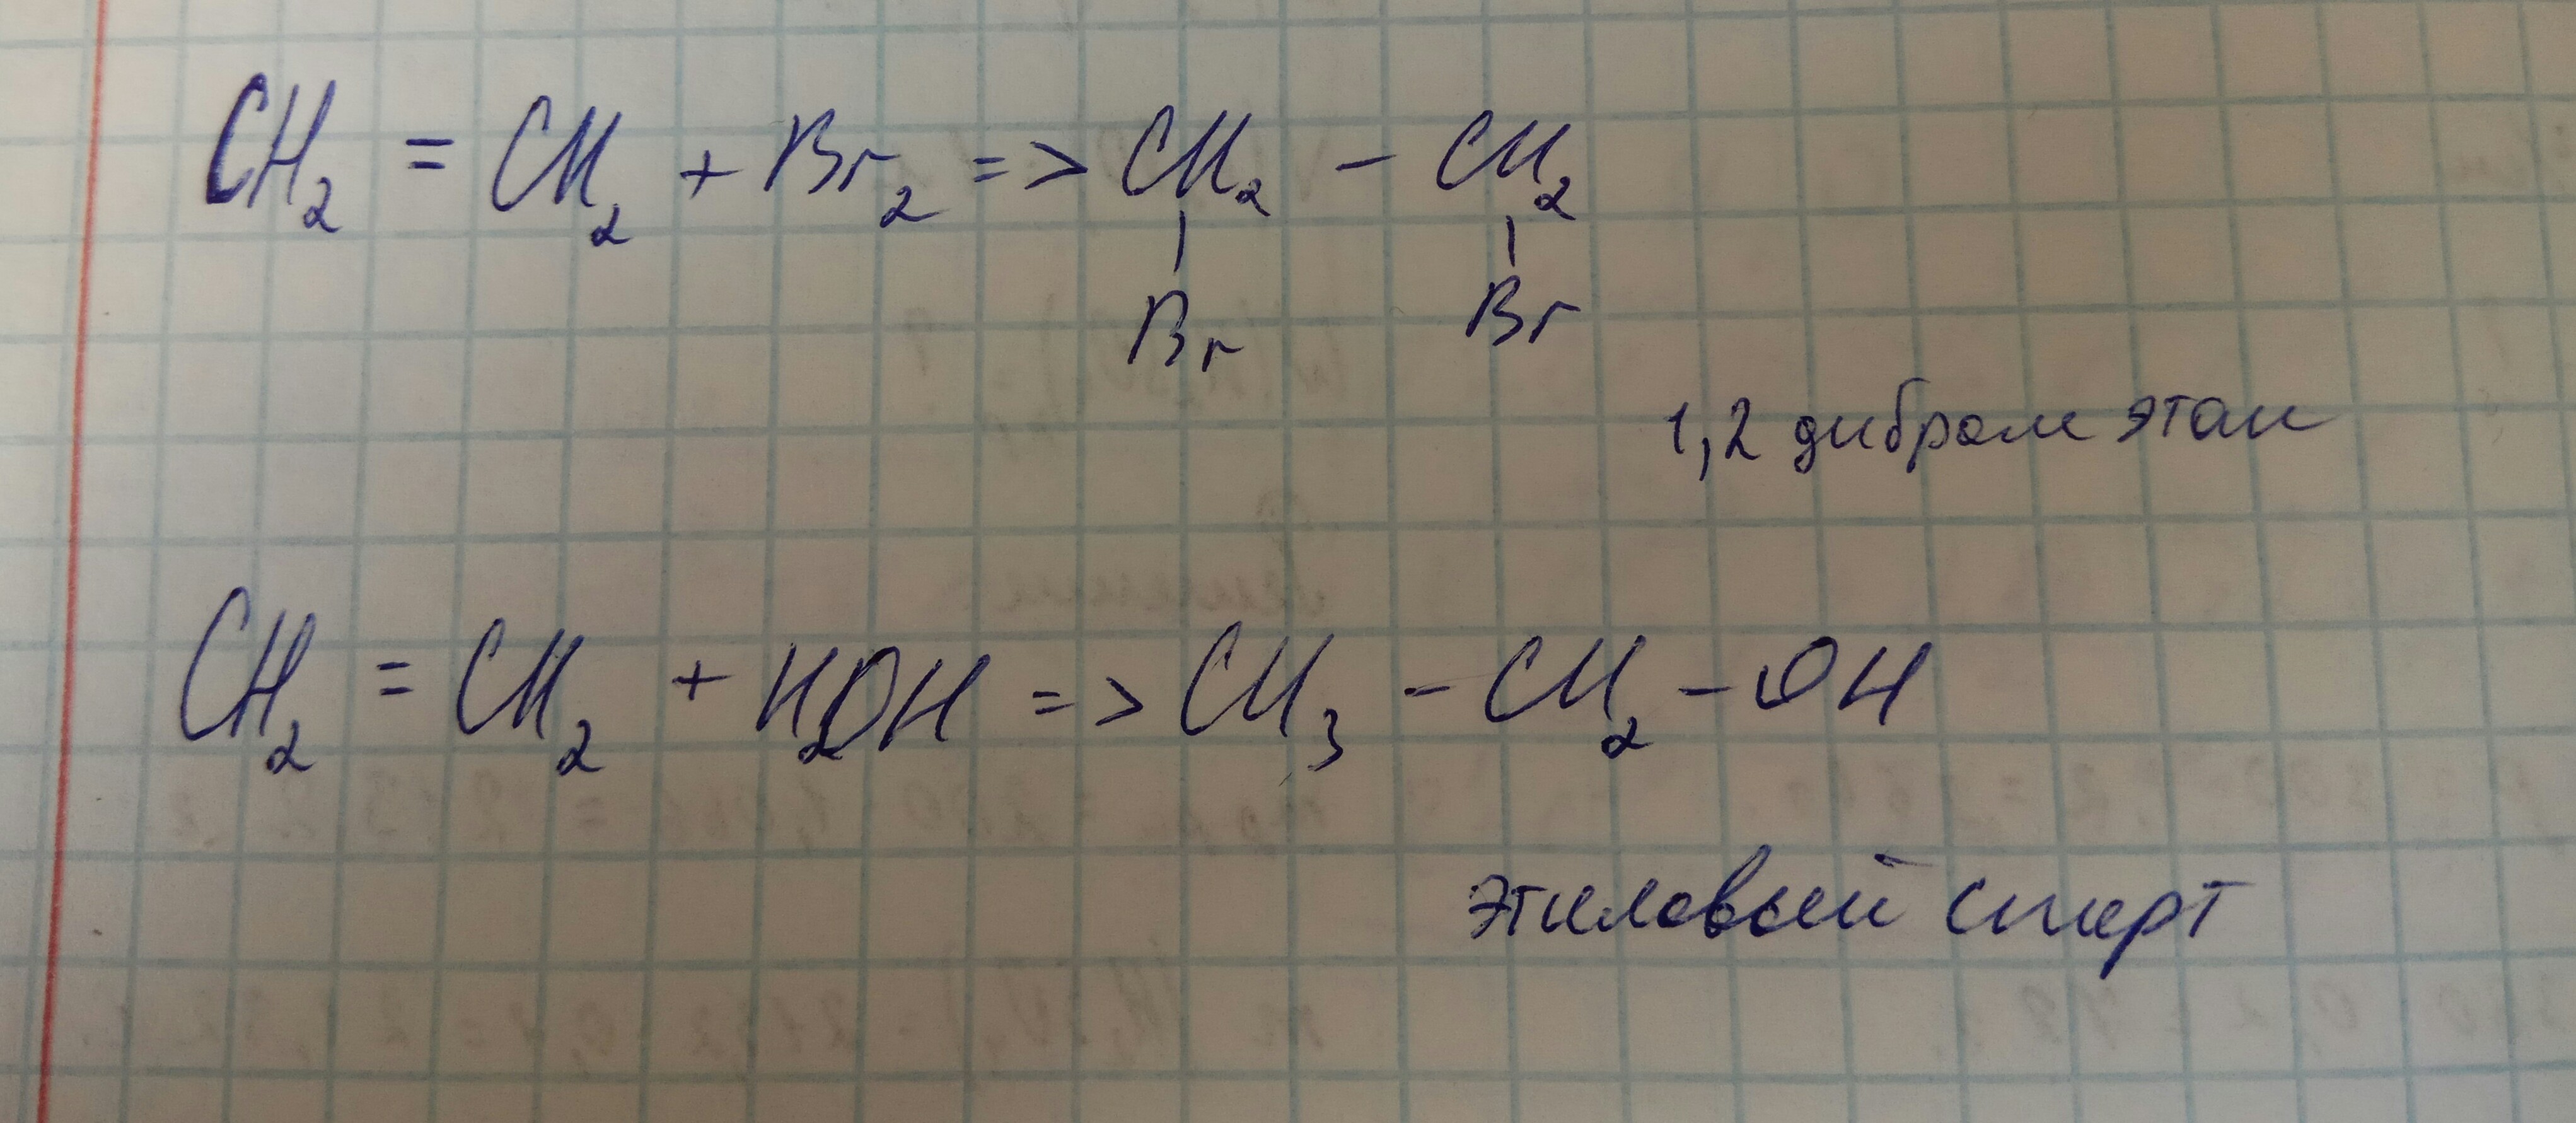 CH₂ = CH₂ + Br₂ => CH₂ - CH₂
Br Br
1,2 дибром этан
CH₂ = CH₂ + H₂OH => CH₃ - CH₂ - OH
этиловый спирт